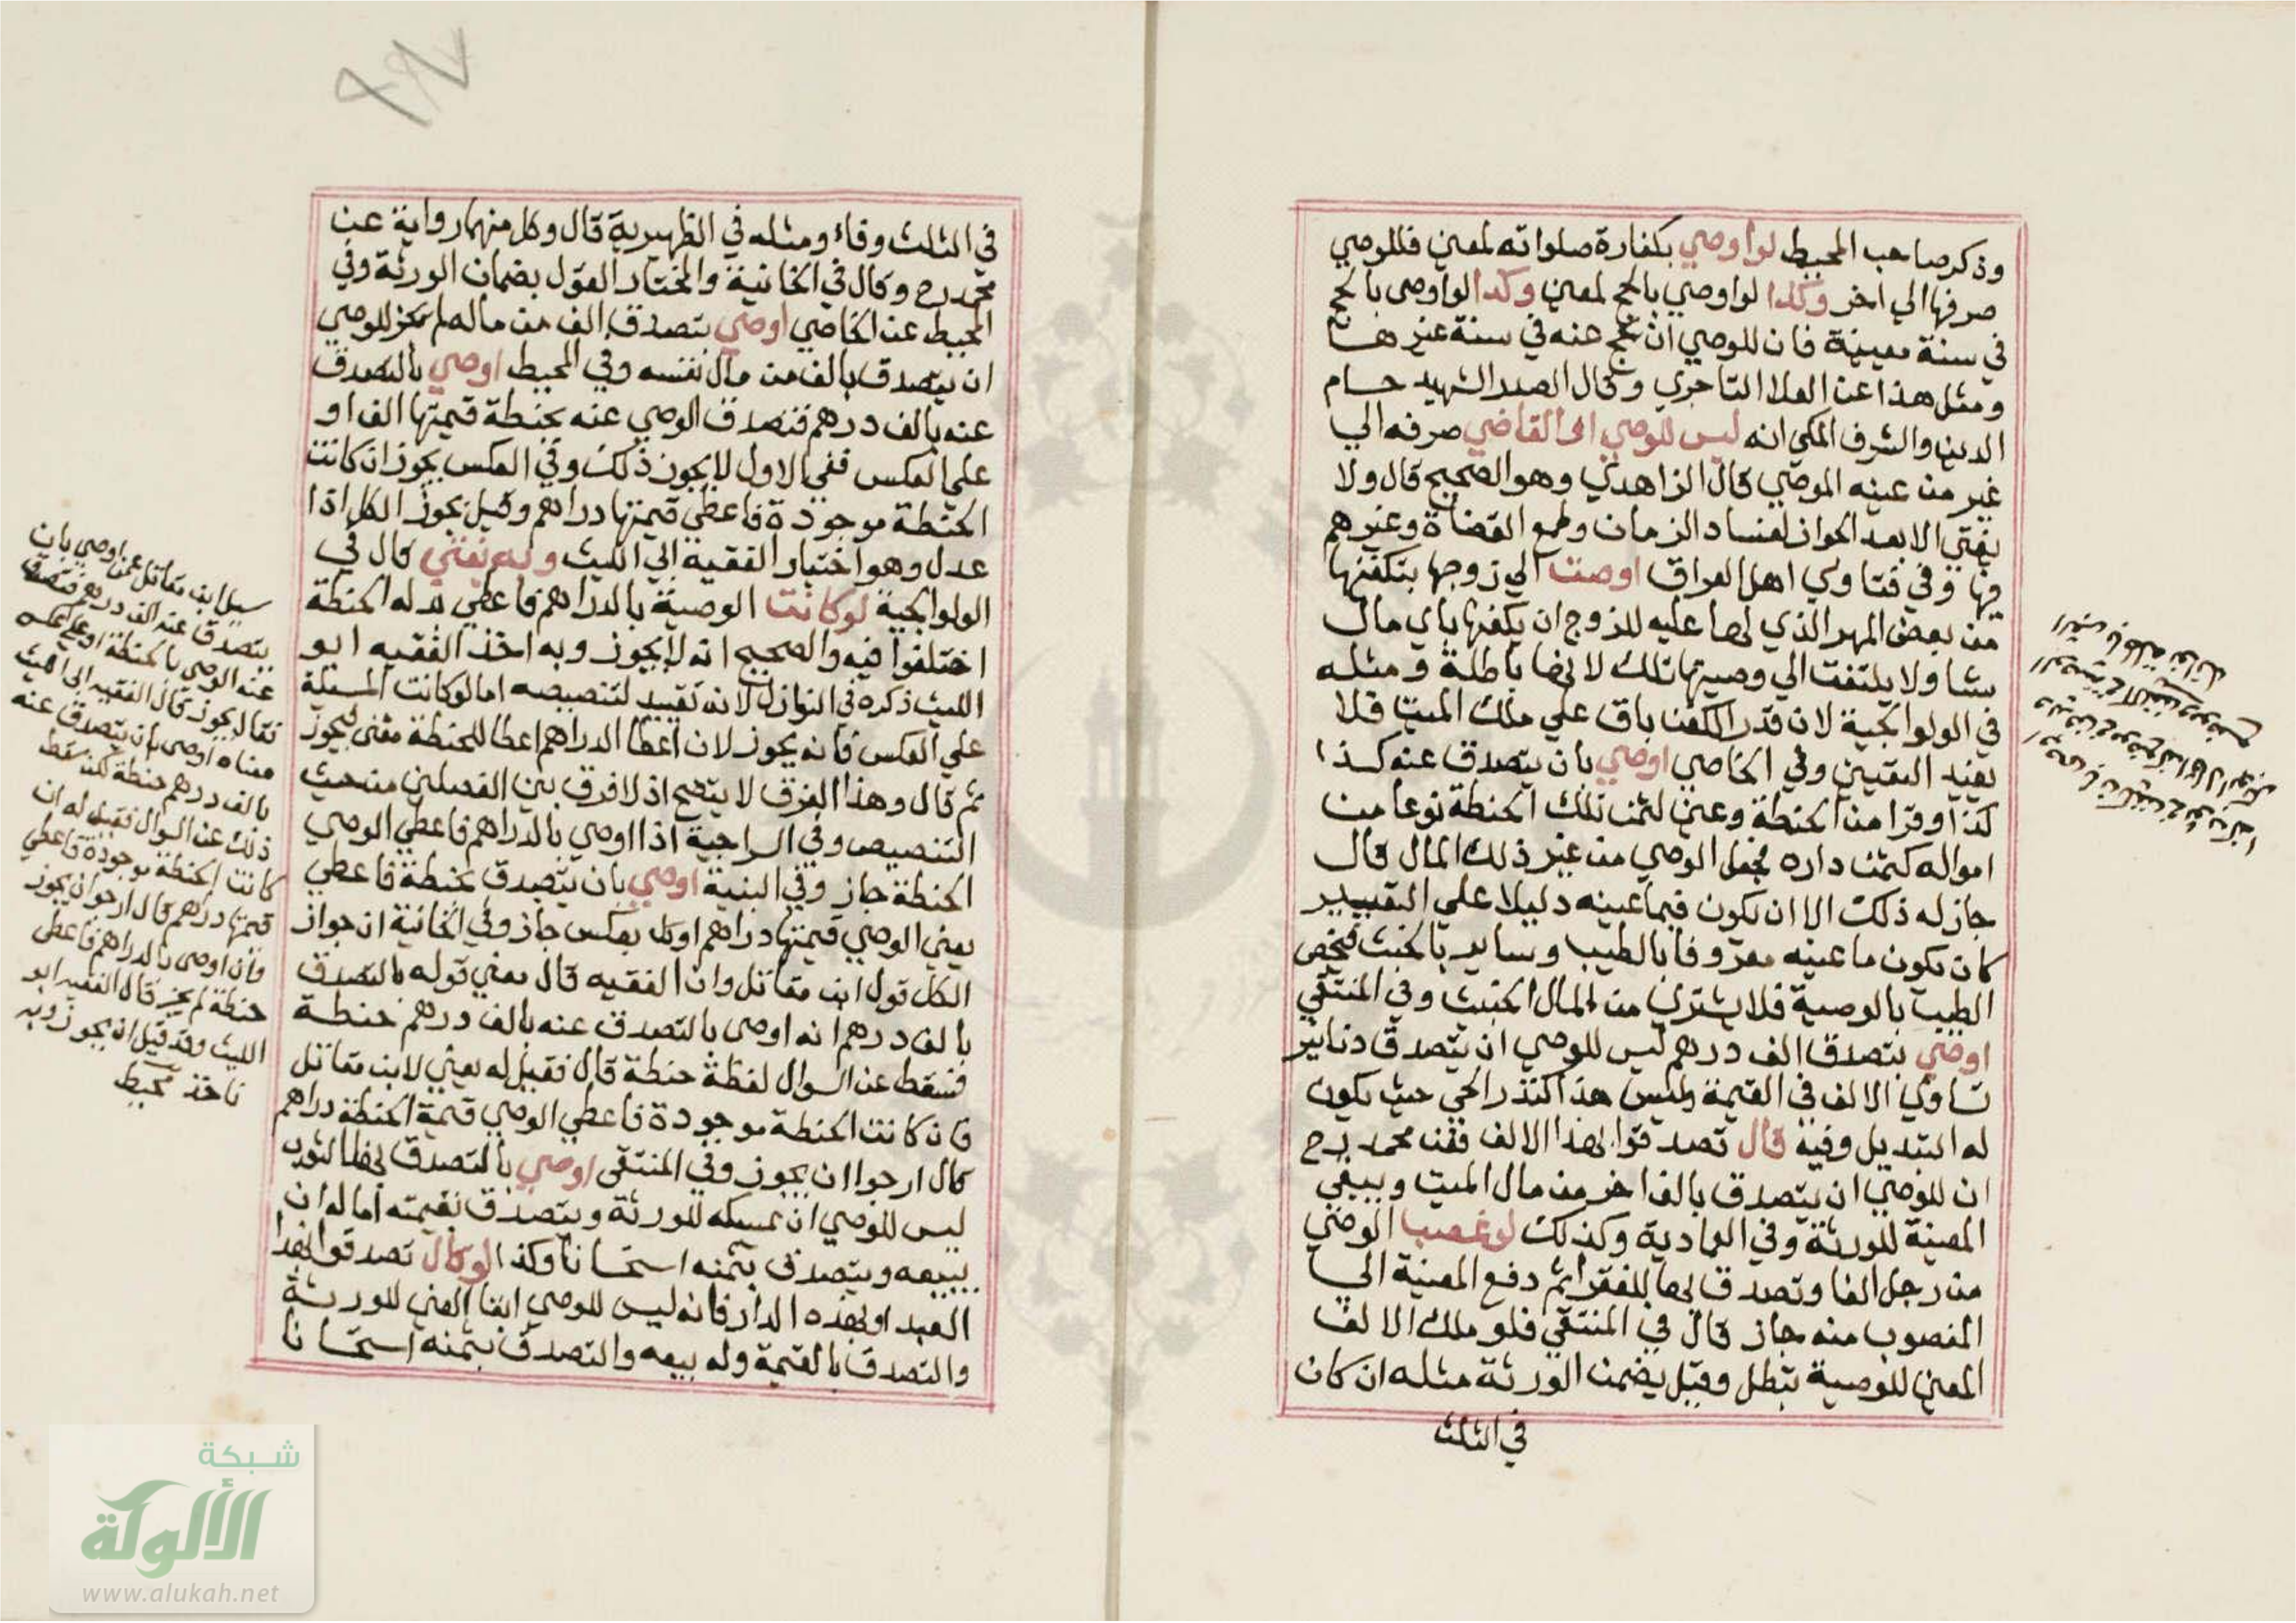 وذكر صاحب المحيط لو اوصي بكفارة صلواته لمعين فللوصي
صرفها الي اخر وكذا لو اوصي بالحج لمعين وكذا لو اوصى بالحج
في سنة معينة فان للوصي ان يحج عنه في سنة غيرها
ومثل هذا عن العلا التاجري وقال الصدر الشهيد حسام
الدين والشرف المكي انه ليس للوصي ال القاضي صرفه الي
غير من عينه الموصي قال الزاهدي وهو الصحيح قال ولا
يفتي الا بعد الجواز لفساد الزمان وطمع القضاة وغيرهم
فيها وفي فتاوي اهل العراق اوصت الي زوجها بتكفنها
من بعض المهر الذي لها عليه للزوج ان يكفنها باي مال
يشا ولا يلتفت الي وصيتها تلك لانها باطلة ومثله
في الولوالجية لان قدر الكفن باق علي ملك الميت فلا
يفيد التعيين وفي الخاصي اوصي بان يتصدق عنه كذا
كذا وقرا من الحنطة وعين لثمن تلك الحنطة نوعا من
امواله كثمن داره فجعل الوصي من غير ذلك المال قال
جاز له ذلك الا ان يكون فيما عينه دليلا علي التقييد
كان يكون ما عينه معروفا بالطيب وسايره بالخبث فيخص
الطيب بالوصية فلا يشتري من المال الخبيث وفي المنتقي
اوصي بتصدق الف درهم ليس للوصي ان يتصدق دنانير
تساوي الالف في القيمة وليس هذا كنذر الحي حيث يكون
له التبديل وفيه قال تصدقوا بهذا الالف فعن محمد رح
ان للوصي ان يتصدق بالف اخر من مال الميت ويبقي
المعينة للورثة وفي العمادية وكذلك لو غصب الوصي
من رجل الفا وتصدق بها للفقرا ثم دفع المعينة الي
المغصوب منه جاز قال في المنتقي فلو هلك الالف
المعين للوصية تبطل وقيل يضمن الورثة مثله ان كان
في الثلث
في الثلث وفاء ومثله في الظهيرية قال وكل منهما رواية عن
محمد رح وقال في الخانية والمختار القول بضمان الورثة وفي
المحيط عن الخاصي اوصي بتصدق الف من ماله لم يجز للوصي
ان يتصدق بالف من مال نفسه وفي المحيط اوصي بالتصدق
عنه بالف درهم فتصدق الوصي عنه بحنطة قيمتها الف او
علي العكس ففي الاول لا يجوز ذلك وفي العكس يجوز ان كانت
الحنطة موجودة فاعطي قيمتها دراهم وقيل يجوز الكل اذا
عدل وهو اختيار الفقيه ابي الليث وبه نفتي قال في
الولوالجية لو كانت الوصية بالدراهم فاعطي بدله الحنطة
اختلفوا فيه والصحيح انه لا يجوز وبه اخذ الفقيه ابو
الليث ذكره في النوازل لانه تقييد لتنصيصه اما لو كانت المسيلة
علي العكس فانه يجوز لان اعطا الدراهم اعطا للحنطة معنى فيجوز
ثم قال وهذا الفرق لا يتضح اذ لا فرق بين الفصلين من حيث
التنصيص وفي السراجية اذا اوصي بالدراهم فاعطي الوصي
الحنطة جاز وفي البنية اوصي بان يتصدق بحنطة فاعطي
يعني الوصي قيمتها دراهم او كان بعكس جاز وفي الخانية ان جواز
الكل قول ابن مقاتل وان الفقيه قال معني قوله بالتصدق
بالف درهم انه اوصى بالتصدق عنه بالف درهم حنطة
فسقط عن السوال لفظة حنطة قال فقيل له يعني لابن مقاتل
فان كانت الحنطة موجودة فاعطي الوصي قيمة الحنطة دراهم
قال ارجوا ان يجوز وفي المنتقى اوصي بالتصدق بهذا الثوب
ليس للوصي ان يمسكه للورثة ويتصدق بقيمته اما له ان
يبيعه ويتصدق بثمنه استحسانا وكذا لو قال تصدقوا بهذا
العبد او بهذه الدار فانه ليس للوصي ابقا العين للورثة
والتصدق بالقيمة وله بيعه والتصدق بثمنه استحسانا
سيل ابن مقاتل عمن اوصي بان
يتصدق عنه بالف درهم فتصدق
عنه الوصي بالحنطة او علي عكسه
فقال يجوز قال الفقيه ابي الليث
معناه اوصى بان يتصدق عنه
بالف درهم حنطة لكن سقط
ذلك عن السوال فقيل له ان
كانت الحنطة موجودة فاعطي
قيمتها دراهم قال ارجو ان يجوز
فان اوصى بالدراهم فاعطى
حنطة لم يجز قال الفقيه ابو
الليث وقد قيل انه يجوز وبه
ناخذ محيط
شبكة
الألوكة
www.alukah.net